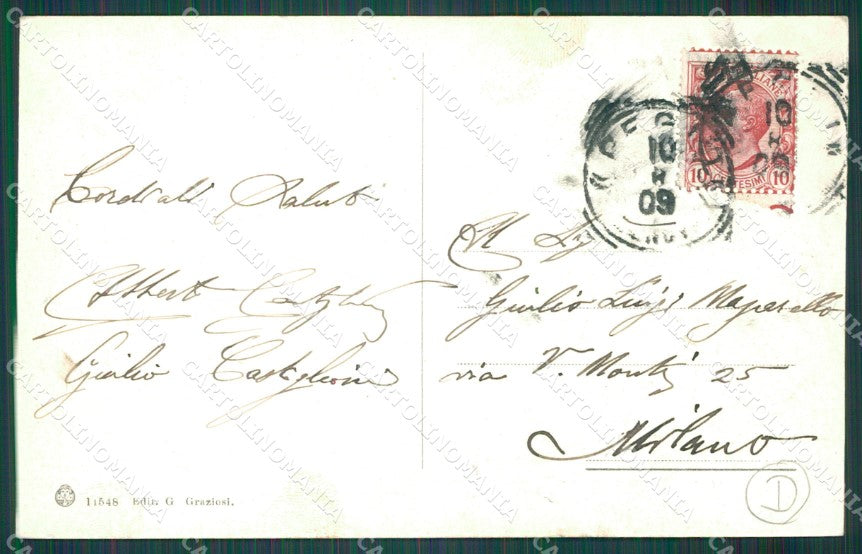 Cordiali Saluti
Alberto Castiglioni
Giulio Castiglioni
Al Sig
Giulio Luigi
via V. Monti 25
Milano
10
09
10
10 CENTESIMI 10
11548 Edit. G Graziosi.
D
CARTOLINOMANIA